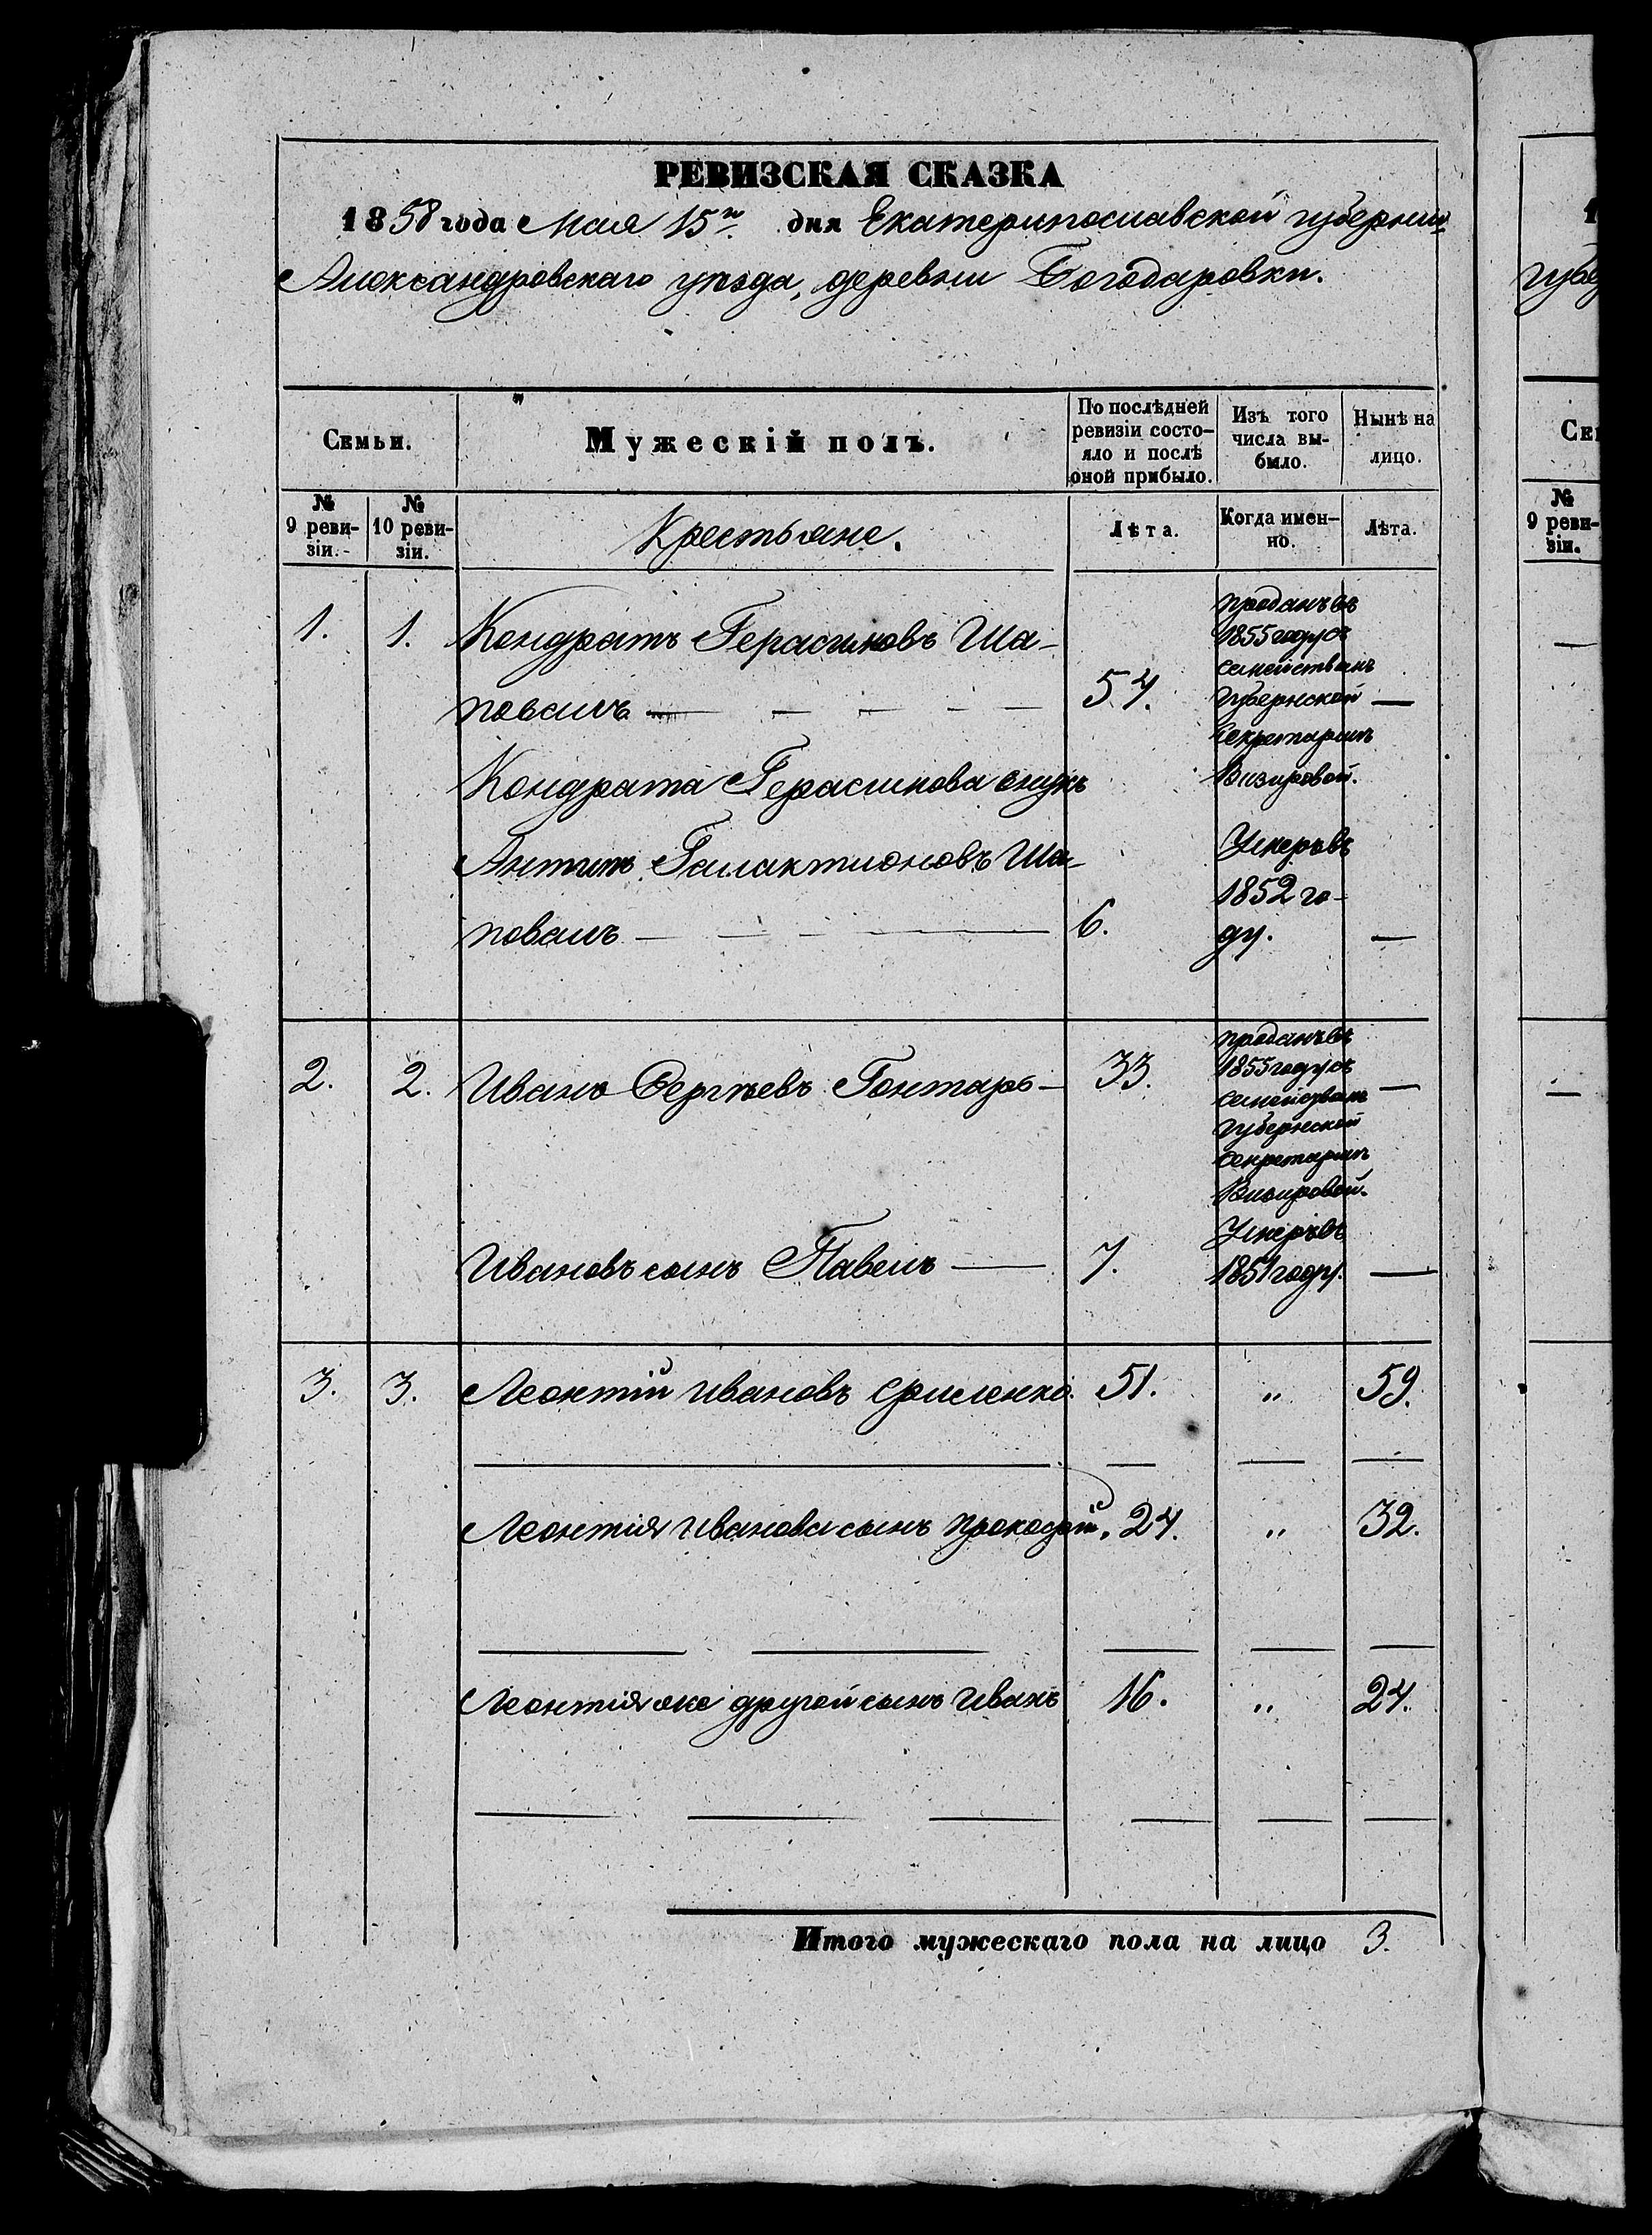 РЕВИЗСКАЯ СКАЗКА
1858 года Мая 15го дня Екатеринославской губернии
Александровскаго уѣзда, деревни Богодаровки.
Семьи.
Мужескій полъ.
По послѣдней
ревизіи состо-
яло и послѣ
оной прибыло.
Изъ того
числа вы-
было.
Нынѣ на
лицо.
№
9 реви-
зіи.
№
10 реви-
зіи.
Крестьяне.
Лѣта.
Когда имен-
но.
Лѣта.
1. 1. Кондратъ Герасимовъ Ша-
повалъ 54. —
проданъ въ
1855 году съ
семействомъ
Губернской
Секретаршѣ
Кондрата Герасимова внукъ
Антипъ Галактионовъ Ша-
повалъ 6. —
Умеръ въ
1852 го-
ду.
2. 2. Иванъ Сергѣевъ Гонтарь 33. —
проданъ въ
1855 году съ
семействомъ
Губернской
Секретаршѣ
Ивановъ сынъ Павелъ 7. —
Умеръ въ
1851 году.
3. 3. Леонтій Ивановъ Ермоленко 51. " 59.
Леонтія Иванова сынъ Прокофій. 24. " 32.
Леонтія же другой сынъ Иванъ 16. " 24.
Итого мужескаго пола на лицо 3.
губе
Се
№
9 реви-
зіи.